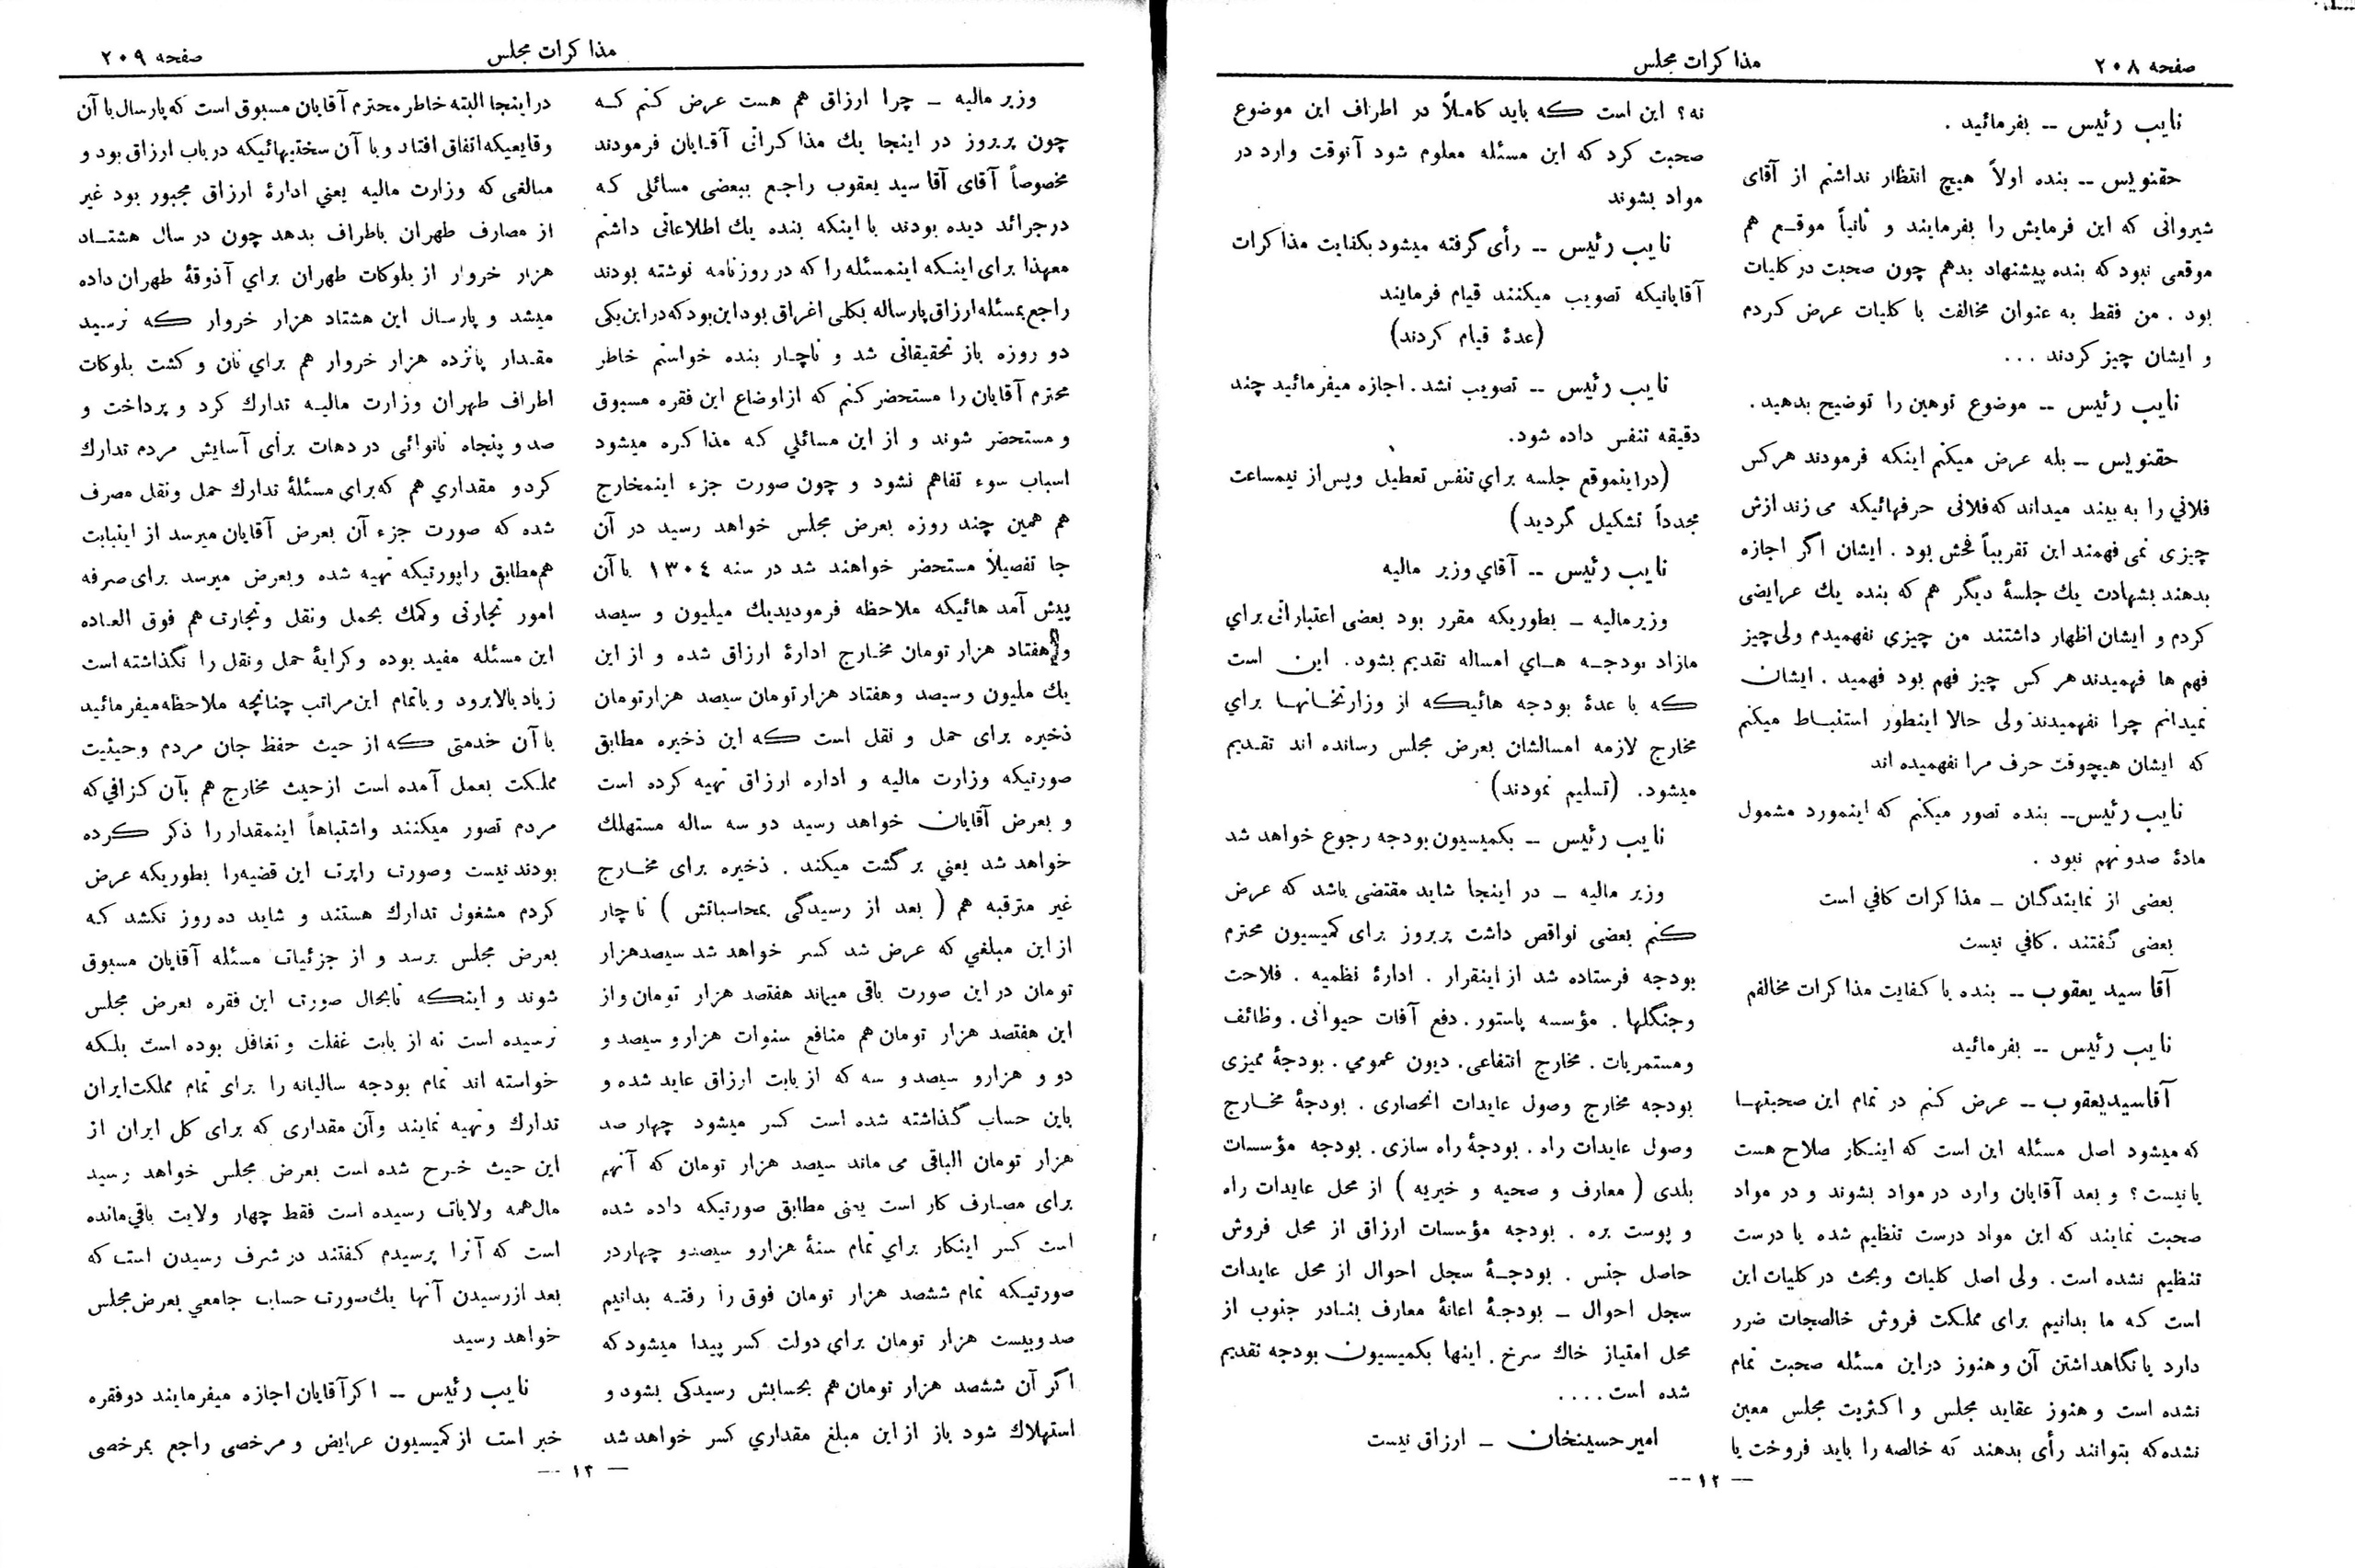 صفحه ۲۰۸
مذاکرات مجلس
نایب رئیس -- بفرمائید .
حقنویس -- بنده اولاً هیچ انتظار نداشتم از آقای
شیروانی که این فرمایش را بفرمایند و ثانیاً موقع هم
موقعی نبود که بنده پیشنهاد بدهم چون صحبت در کلیات
بود . من فقط به عنوان مخالفت با کلیات عرض کردم
و ایشان چیز کردند ...
نایب رئیس -- موضوع توهین را توضیح بدهید .
حقنویس -- بله عرض میکنم اینکه فرمودند هرکس
فلانی را به بیند میداند که فلانی حرفهائیکه می زند ازش
چیزی نمی فهمند این تقریباً فحش بود . ایشان اگر اجازه
بدهند بشهادت یك جلسهٔ دیگر هم که بنده یك عرایضی
کردم و ایشان اظهار داشتند من چیزی نفهمیدم ولی چیز
فهم ها فهمیدند هر کس چیز فهم بود فهمید . ایشان
نمیدانم چرا نفهمیدند ولی حالا اینطور استنباط میکنم
که ایشان هیچوقت حرف مرا نفهمیده اند
نایب رئیس -- بنده تصور میکنم که اینمورد مشمول
مادهٔ صدو نهم نبود .
بعضی از نمایندگان ـ مذاکرات کافی است
بعضی گفتند . کافی نیست
آقا سید یعقوب -- بنده با کفایت مذاکرات مخالفم
نایب رئیس -- بفرمائید
آقا سید یعقوب -- عرض کنم در تمام این صحبتهـا
که میشود اصل مسئله این است که اینکار صلاح هست
یا نیست ؟ و بعد آقایان وارد در مواد بشوند و در مواد
صحبت نمایند که این مواد درست تنظیم شده یا درست
تنظیم نشده است . ولی اصل کلیات و بحث در کلیات این
است که ما بدانیم برای مملکت فروش خالصجات ضرر
دارد یا نگاهداشتن آن و هنوز در این مسئله صحبت تمام
نشده است و هنوز عقاید مجلس و اکثریت مجلس معین
نشده که بتوانند رأی بدهند که خالصه را باید فروخت یا
نه ؟ این است که باید کاملاً در اطراف این موضوع
صحبت کرد که این مسئله معلوم شود آنوقت وارد در
مواد بشوند
نایب رئیس -- رأی گرفته میشود بکفایت مذاکرات
آقایانیکه تصویب میکنند قیام فرمایند
(عدهٔ قیام کردند)
نایب رئیس -- تصویب نشد . اجازه میفرمائید چند
دقیقه تنفس داده شود.
(در اینموقع جلسه برای تنفس تعطیل و پس از نیمساعت
مجدداً تشکیل گردید)
نایب رئیس -- آقای وزیر مالیه
وزیر مالیه ـ بطوریکه مقرر بود بعضی اعتباراتی برای
مازاد بودجـه هـای امساله تقدیم بشود . این است
که با عدهٔ بودجه هائیکه از وزارتخانهـا برای
مخارج لازمه امسالشان بعرض مجلس رسانده اند تقدیم
میشود. (تسلیم نمودند)
نایب رئیس -- بکمیسیون بودجه رجوع خواهد شد
وزیر مالیه ـ در اینجا شاید مقتضی باشد که عرض
کنم بعضی نواقص داشت پریروز برای کمیسیون محترم
بودجه فرستاده شد از اینقرار . ادارهٔ نظمیه . فلاحت
وجنگلها . مؤسسه پاستور . دفع آفات حیوانی . وظائف
ومستمریات . مخارج انتفاعی . دیون عمومی . بودجهٔ ممیزی
بودجه مخارج وصول عایدات انحصاری . بودجهٔ مخـارج
وصول عایدات راه . بودجهٔ راه سازی . بودجه مؤسسات
بلدی ( معارف و صحیه و خیریه ) از محل عایدات راه
و پوست بره . بودجه مؤسسات ارزاق از محل فروش
حاصل جنس . بودجـهٔ سجل احوال از محل عایدات
سجل احوال ـ بودجهٔ اعانهٔ معارف بنـادر جنوب از
محل امتیاز خاك سرخ . اینها بکمیسیون بودجه تقدیم
شده است ....
امیر حسینخان ـ ارزاق نیست
-- ۱۲ --
صفحه ۲۰۹
مذاکرات مجلس
وزیر مالیه ـ چرا ارزاق هم هست عرض کنم کـه
چون پریروز در اینجا یك مذاکراتی آقـایان فرمودند
مخصوصاً آقای آقا سید یعقوب راجع ببعضی مسائلی که
در جرائد دیده بودند با اینکه بنده یك اطلاعاتی داشتم
معهذا برای اینـکه اینمسئله را که در روزنامه نوشته بودند
راجع بمسئله ارزاق پارساله بکلی اغراق بود این بود که در این یکی
دو روزه باز تحقیقاتی شد و ناچـار بنده خواستم خاطر
محترم آقایان را مستحضر کنم که از اوضاع این فقره مسبوق
و مستحضر شوند و از این مسائلی کـه مذاکره میشود
اسباب سوء تفاهم نشود و چون صورت جزء اینمخارج
هم همین چند روزه بعرض مجلس خواهد رسید در آن
جا تفصیلاً مستحضر خواهند شد در سنه ۱۳۰٤ با آن
پیش آمد هائیکه ملاحظه فرمودیدیك میلیون و سیصد
و هفتاد هزار تومان مخـارج ادارهٔ ارزاق شده و از این
یك ملیون و سیصد و هفتاد هزار تومان سیصد هزار تومان
ذخیره برای حمل و نقل است که این ذخیره مطابق
صورتیکه وزارت مالیه و اداره ارزاق تهیه کرده است
و بعرض آقایان خواهد رسید دو سه ساله مستهلك
خواهد شد یعنی بر گشت میکند . ذخیره برای مخـارج
غیر مترقبه هم ( بعد از رسیدگی بمحاسباتش ) ناچار
از این مبلغی که عرض شد کسر خواهد شد سیصد هزار
تومان در این صورت باقی میماند هفتصد هزار تومان و از
این هفتصد هزار تومان هم منافع سنوات هزار و سیصد و
دو و هزار و سیصد و سه که از بابت ارزاق عاید شده و
باین حساب گذاشته شده است کسر میشود چهار صد
هزار تومان الباقی می ماند سیصد هزار تومان که آنهم
برای مصـارف کار است یعنی مطابق صورتیکه داده شده
است کسر اینکار برای تمام سنهٔ هزار و سیصد و چهار در
صورتیـکه تمام ششصد هزار تومان فوق را رفتـه بدانیم
صد و بیست هزار تومان برای دولت کسر پیدا میشود که
اگر آن ششصد هزار تومان هم بحسابش رسیدگی بشود و
استهلاك شود باز از این مبلغ مقداری کسر خواهد شد
در اینجا البته خاطر محترم آقایان مسبوق است که پارسال با آن
وقایعیکه اتفاق افتاد و با آن سختیهائیکه در باب ارزاق بود و
مبالغی که وزارت مالیه یعنی ادارهٔ ارزاق مجبور بود غیر
از مصارف طهران باطراف بدهد چون در سال هشتـاد
هزار خروار از بلوکات طهران برای آذوقهٔ طهران داده
میشد و پارسال این هشتاد هزار خروار که نرسید
مقـدار پانزده هزار خروار هم برای نان و کشت بلوکات
اطراف طهران وزارت مالیـه تدارك کرد و پرداخت و
صد و پنجاه نانوائی در دهات برای آسایش مردم تدارك
کرد و مقداری هم که برای مسئلهٔ تدارك حمل و نقل مصرف
شده که صورت جزء آن بعرض آقایان میرسد از اینبابت
هم مطابق راپورتیکه تهیه شده و بعرض میرسد برای صرفه
امور تجارتی و کمك بحمل و نقل و تجارت هم فوق العـاده
این مسئله مفید بوده و کرایهٔ حمل و نقل را نگذاشته است
زیاد بالا برود و باتمام این مراتب چنانچه ملاحظه میفرمائید
با آن خدمتی که از حیث حفظ جان مردم و حیثیت
مملـکت بعمل آمده است از حیث مخارج هم بآن گزافی که
مردم تصور میکنند و اشتباهاً اینمقدار را ذکر کرده
بودند نیست و صورت راپرت این قضیه را بطوریکه عرض
کردم مشغول تدارك هستند و شاید ده روز نکشد که
بعرض مجلس برسد و از جزئیات مسئله آقایان مسبوق
شوند و اینکه تابحال صورت این فقره بعرض مجلس
نرسیده است نه از بابت غفلت و تغافل بوده است بلـکه
خواسته اند تمام بودجه سالیانه را برای تمام مملکت ایران
تدارك و تهیه نمایند و آن مقداری که برای کل ایران از
این حیث خـرج شده است بعرض مجلس خواهد رسید
مال همه ولایات رسیده است فقط چهار ولایت باقی مانده
است که آنرا پرسیدم گفتند در شرف رسیدن است که
بعد از رسیدن آنها یك صورت حساب جامعی بعرض مجلس
خواهد رسید
نایب رئیس -- اگر آقایان اجازه میفرمایند دو فقره
خبر است از کمیسیون عرایض و مرخصی راجع بمرخصی
— ۱۳ —